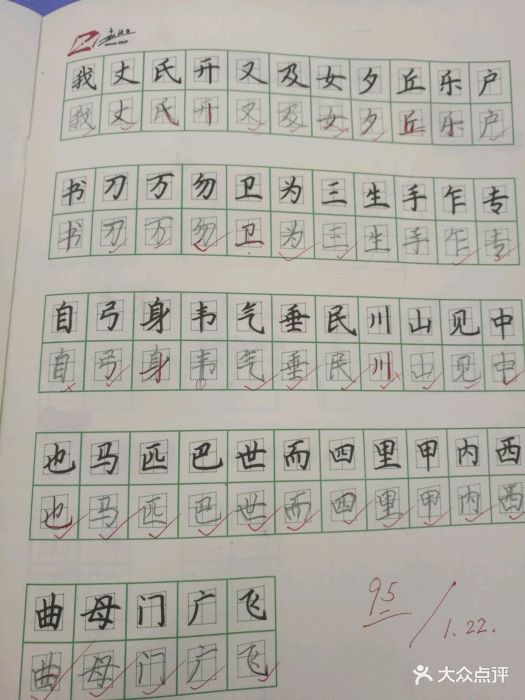 我丈氏开又及女夕丘乐户
我丈氏开又及女夕丘乐户
书刀万勿卫为三生手乍专
书刀万勿卫为三生手乍专
自弓身韦气垂民川山见中
自弓身韦气垂民川山见中
也马匹巴世而四里甲内西
也马匹巴世而四里甲内西
曲母门广飞
曲母门广飞
95
1.22.
大众点评